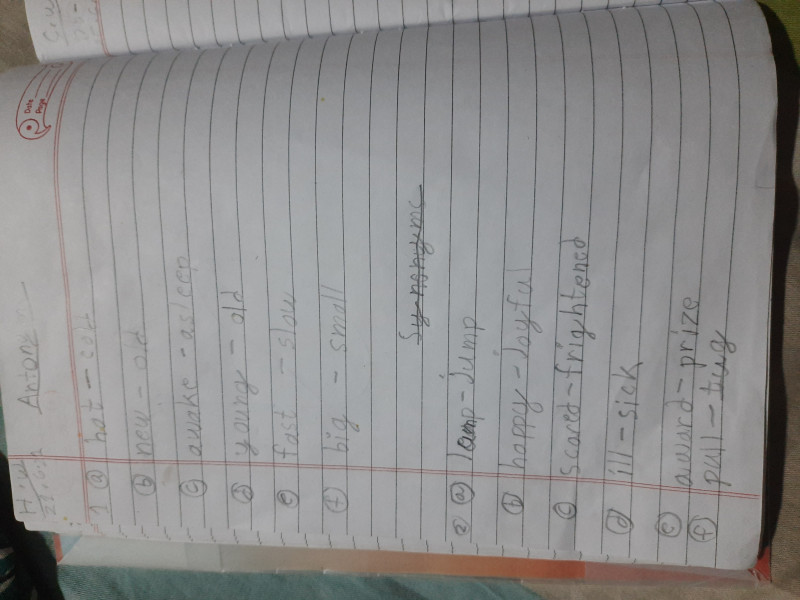 H.W
Date
Page
1 (a) hot - cold
(b) new - old
(c) awake - asleep
(d) young - old
(e) fast - slow
(f) big - small
Sy-nonyms
2 (a) - Jump
(b) happy - Joyful
(c) scared - frightened
(d) ill - sick
(e) award - prize
(f) pull - tug